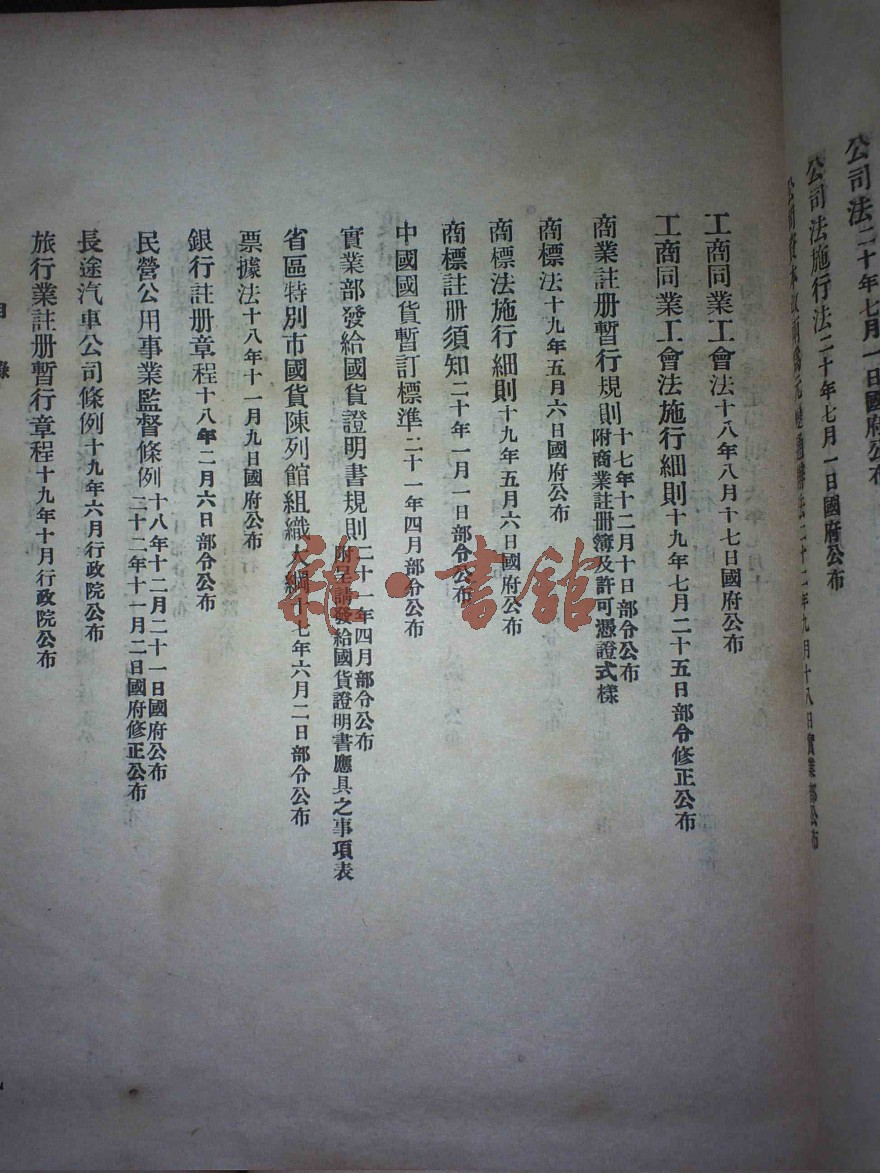 公司法二十年七月一日國府公布
公司法施行法二十年七月一日國府公布
工商同業工會法十八年八月十七日國府公布
工商同業工會法施行細則十九年七月二十五日部令修正公布
商業註册暫行規則十七年十二月十日部令公布
附商業註册簿及許可憑證式樣
商標法十九年五月六日國府公布
商標法施行細則十九年五月六日國府公布
商標註册須知二十年一月一日部令公布
中國國貨暫訂標準二十一年四月部令公布
實業部發給國貨證明書規則二十一年四月部令公布
附呈請發給國貨證明書應具之事項表
省區特別市國貨陳列館組織大綱十七年六月二日部令公布
票據法十八年十一月九日國府公布
銀行註册章程十八年二月六日部令公布
民營公用事業監督條例十八年十二月二十一日國府公布
二十二年十一月二日國府修正公布
長途汽車公司條例十九年六月行政院公布
旅行業註册暫行章程十九年十月行政院公布
目錄
雜·書館